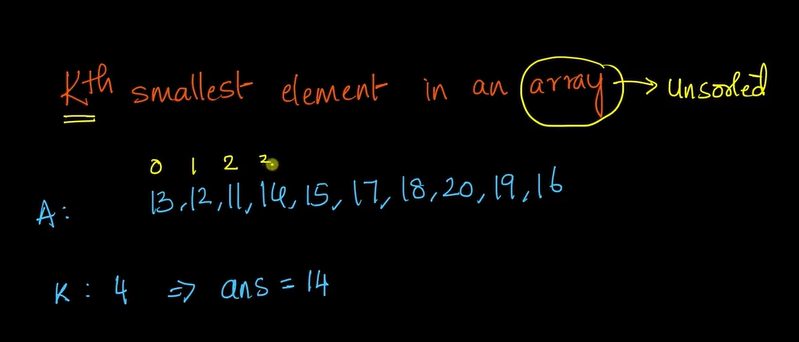 Kth smallest element in an array → unsorted
0 1 2
A: 13, 12, 11, 14, 15, 17, 18, 20, 19, 16
K : 4 ⇒ ans = 14